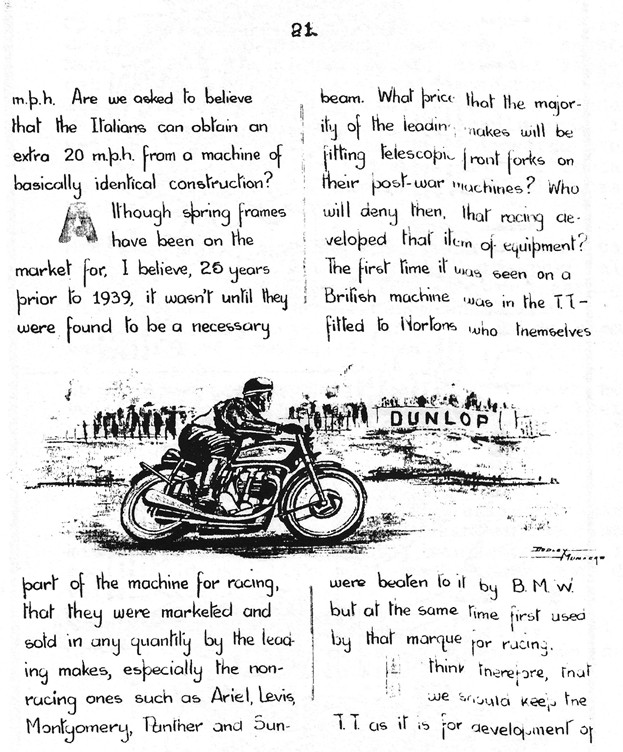 21.
m.p.h. Are we asked to believe
that the Italians can obtain an
extra 20 m.p.h. from a machine of
basically identical construction?
Although spring frames
have been on the
market for, I believe, 25 years
prior to 1939, it wasn't until they
were found to be a necessary
part of the machine for racing,
that they were marketed and
sold in any quantity by the lead-
ing makes, especially the non-
racing ones such as Ariel, Levis,
Montgomery, Panther and Sun-
beam. What price that the major-
ity of the leading makes will be
fitting telescopic front forks on
their post-war machines? Who
will deny then, that racing de-
veloped that item of equipment?
The first time it was seen on a
British machine was in the T.T.-
fitted to Nortons who themselves
DUNLOP
were beaten to it by B.M.W.
but at the same time first used
by that marque for racing.
I think therefore, that
we should keep the
T.T. as it is for development of